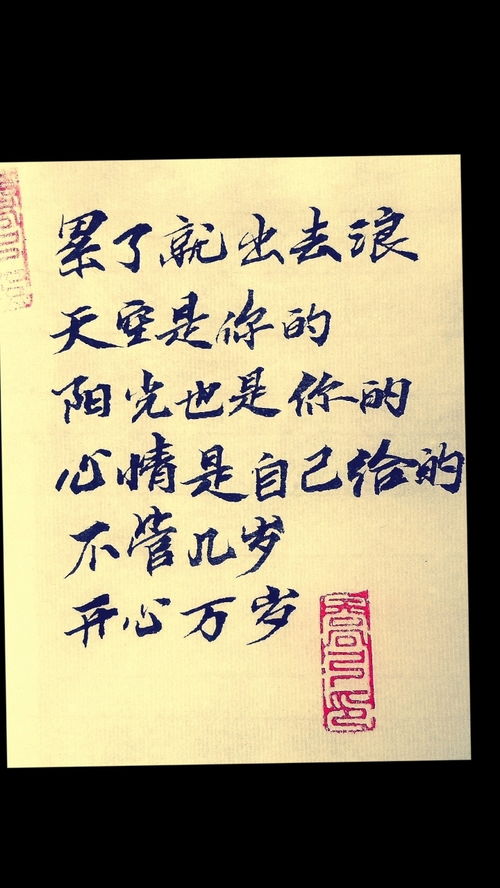 累了就出去浪
天空是你的
阳光也是你的
心情是自己给的
不管几岁
开心万岁